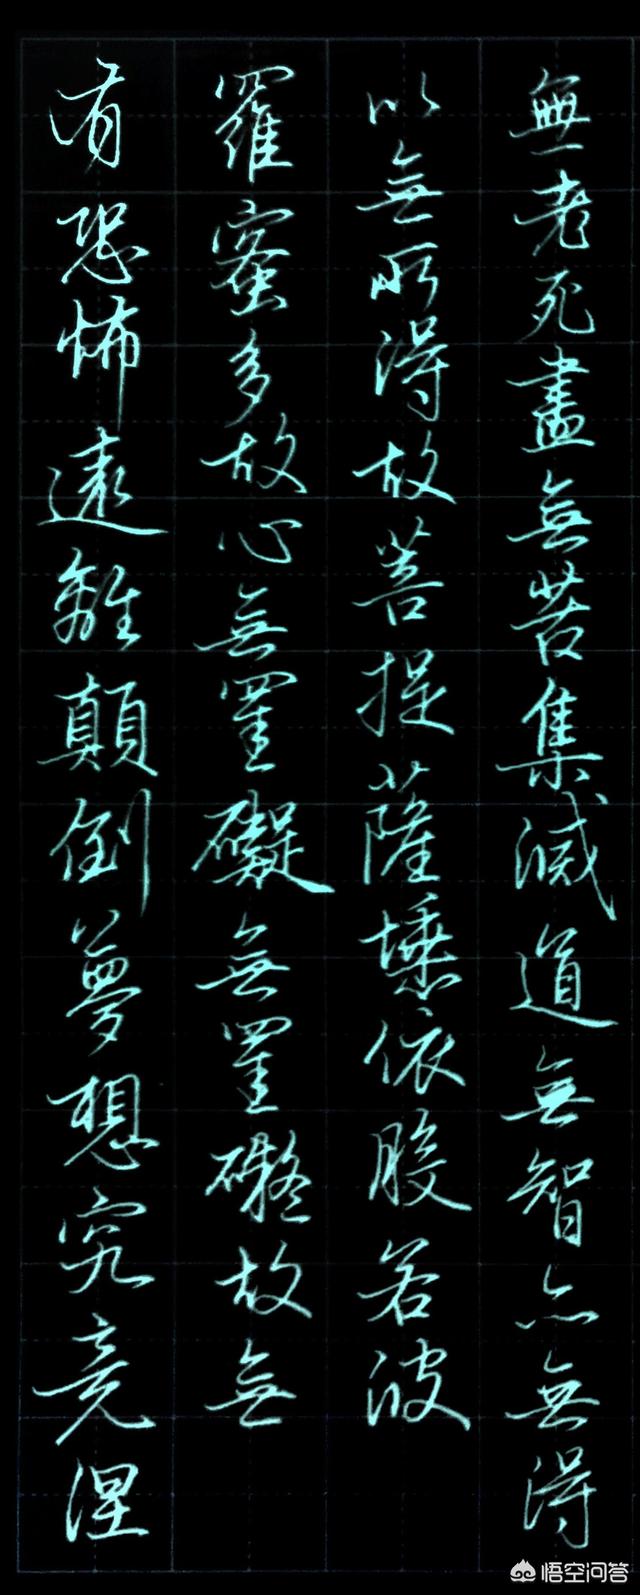 無老死盡無苦集滅道無智亦無得
以無所得故菩提薩埵依般若波
羅蜜多故心無罣礙無罣礙故無
有恐怖遠離顛倒夢想究竟涅
悟空问答